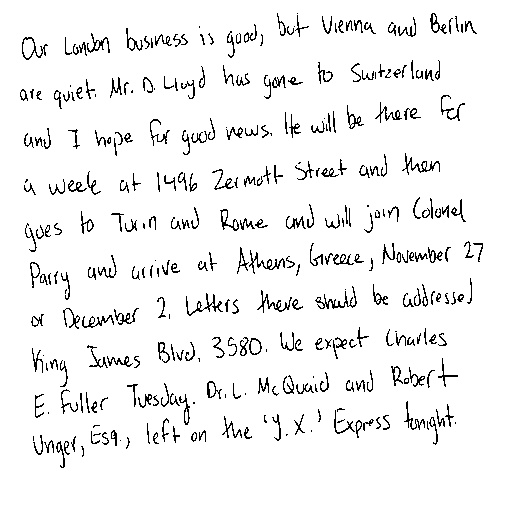 Our London business is good, but Vienna and Berlin
are quiet. Mr. D. Lloyd has gone to Switzerland
and I hope for good news. He will be there for
a week at 1496 Zermott Street and then
goes to Turin and Rome and will join Colonel
Parry and arrive at Athens, Greece, November 27
or December 2. Letters there should be addressed
King James Blvd. 3580. We expect Charles
E. Fuller Tuesday. Dr. L. McQuaid and Robert
Unger, Esq., left on the 'Y.X.' Express tonight.